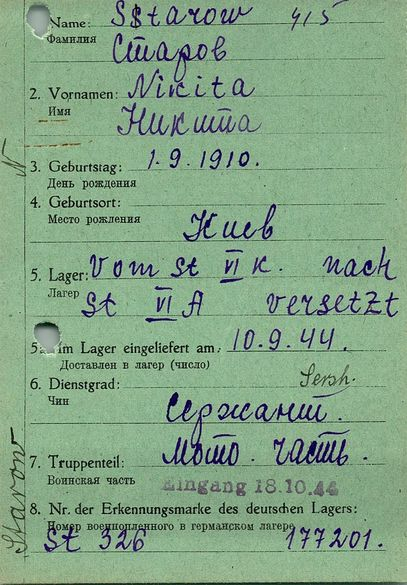 Name: SStarow 415
Фамилия Старов
2. Vornamen: Nikita
Имя Никита
N
3. Geburtstag: 1.9.1910.
День рождения
4. Geburtsort:
Место рождения Киев
5. Lager: Vom St VI K. nach
Лагер St VI A versetzt
5a. Im Lager eingeliefert am: 10.9.44.
Доставлен в лагер (число)
6. Dienstgrad: Sersh.
Чин Сержант.
7. Truppenteil: Мото. часть.
Воинская часть Eingang 18.10.44
8. Nr. der Erkennungsmarke des deutschen Lagers:
Номер военнопленного в германском лагере
St 326 177201.
Starow